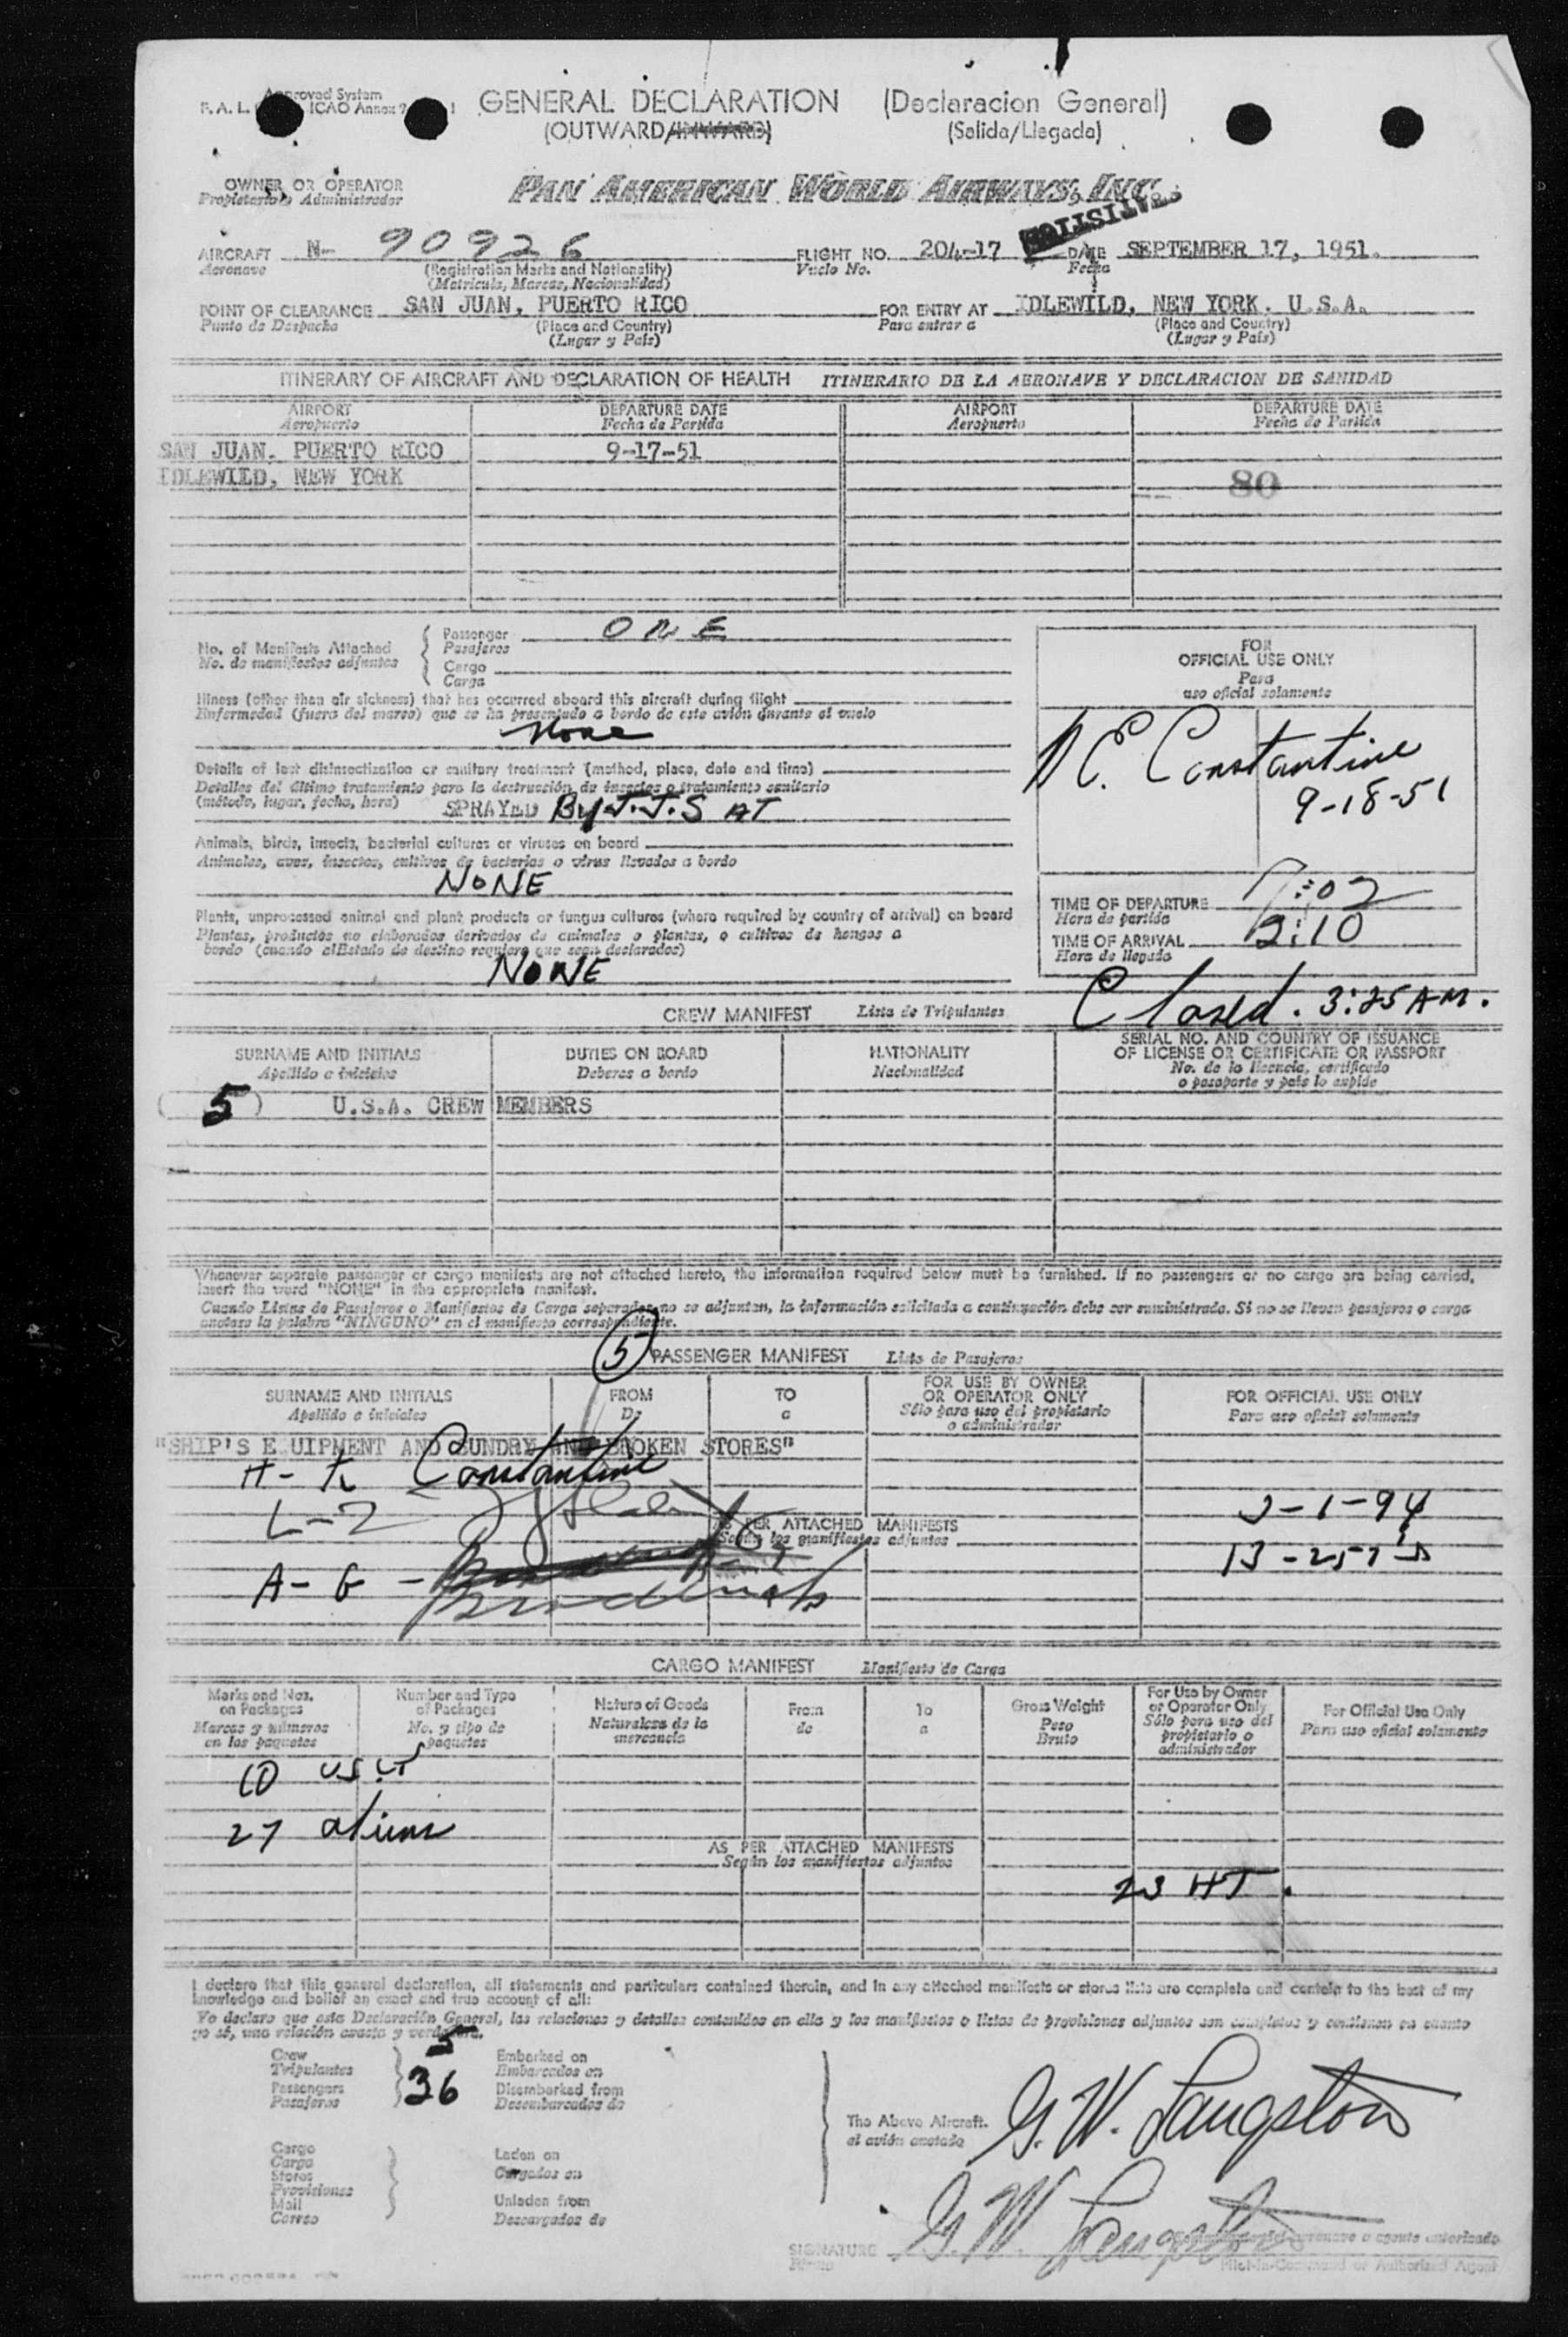 Approved System
F. A. L. ICAO Annex 9
GENERAL DECLARATION (Declaracion General)
(OUTWARD/INWARD) (Salida/Llegada)
OWNER OR OPERATOR
Propietario o Administrador
PAN AMERICAN WORLD AIRWAYS, INC.
STATISTICS
AIRCRAFT N- 90926 FLIGHT NO. 204-17 DATE SEPTEMBER 17, 1951.
Aeronave (Registration Marks and Nationality) Vuelo No. Fecha
(Matricula, Marcas, Nacionalidad)
POINT OF CLEARANCE SAN JUAN, PUERTO RICO FOR ENTRY AT IDLEWILD, NEW YORK. U.S.A.
Punto de Despacho (Place and Country) Para entrar a (Place and Country)
(Lugar y País) (Lugar y País)
ITINERARY OF AIRCRAFT AND DECLARATION OF HEALTH ITINERARIO DE LA AERONAVE Y DECLARACION DE SANIDAD
AIRPORT DEPARTURE DATE AIRPORT DEPARTURE DATE
Aeropuerto Fecha de Partida Aeropuerto Fecha de Partida
SAN JUAN. PUERTO RICO 9-17-51
IDLEWILD, NEW YORK 80
No. of Manifests Attached Passenger ONE
No. de manifiestos adjuntos Pasajeros
Cargo
Carga
Illness (other than air sickness) that has occurred aboard this aircraft during flight
Enfermedad (fuera del mareo) que se ha presentado a bordo de este avión durante el vuelo
None
Details of last disinsectization or sanitary treatment (method, place, date and time)
Detalles del último tratamiento para la destrucción de insectos o tratamiento sanitario
(método, lugar, fecha, hora) SPRAYED By J.J.S AT
Animals, birds, insects, bacterial cultures or viruses on board
Animales, aves, insectos, cultivos de bacterias o virus llevados a bordo
NONE
Plants, unprocessed animal and plant products or fungus cultures (where required by country of arrival) on board
Plantas, productos no elaborados derivados de animales o plantas, o cultivos de hongos a
bordo (cuando el Estado de destino requiera que sean declarados)
NONE
FOR
OFFICIAL USE ONLY
Para
uso oficial solamente
N C. Constantine
9-18-51
TIME OF DEPARTURE 7:02
Hora de partida
TIME OF ARRIVAL 2:10
Hora de llegada
Closed. 3:25 AM.
CREW MANIFEST Lista de Tripulantes
SURNAME AND INITIALS DUTIES ON BOARD NATIONALITY SERIAL NO. AND COUNTRY OF ISSUANCE
OF LICENSE OR CERTIFICATE OR PASSPORT
Apellido e iniciales Deberes a bordo Nacionalidad No. de la licencia, certificado
o pasaporte y país lo expide
( 5 ) U.S.A. CREW MEMBERS
Whenever separate passenger or cargo manifests are not attached hereto, the information required below must be furnished. If no passengers or no cargo are being carried,
insert the word "NONE" in the appropriate manifest.
Cuando Listas de Pasajeros o Manifiestos de Carga separados no se adjuntan, la información solicitada a continuación debe ser suministrada. Si no se llevan pasajeros o carga
anotese la palabra "NINGUNO" en el manifiesto correspondiente.
5 PASSENGER MANIFEST Lista de Pasajeros
SURNAME AND INITIALS FROM TO FOR USE BY OWNER
OR OPERATOR ONLY FOR OFFICIAL USE ONLY
Apellido e iniciales De a Sólo para uso del propietario
o administrador Para uso oficial solamente
"SHIP'S E UIPMENT AND SUNDRY AND BROKEN STORES"
H - K Constantine
L-Z
3-1-94
AS PER ATTACHED MANIFESTS
Según los manifiestos adjuntos
A - G -
CARGO MANIFEST Manifiesto de Carga
Marks and Nos.
on Packages
Marcas y números
en los paquetes
Number and Type
of Packages
No. y tipo de
paquetes
Nature of Goods
Naturaleza de la
mercancía
From
de
To
a
Gross Weight
Peso
Bruto
For Use by Owner
or Operator Only
Sólo para uso del
propietario o
administrador
For Official Use Only
Para uso oficial solamente
10
27 aliens
AS PER ATTACHED MANIFESTS
Según los manifiestos adjuntos
23 HT.
I declare that this general declaration, all statements and particulars contained therein, and in any attached manifests or stores lists are complete and contain to the best of my
knowledge and belief an exact and true account of all:
Yo declaro que esta Declaración General, las relaciones y detalles contenidos en ella y los manifiestos o listas de provisiones adjuntos son completos y contienen en cuanto
yo sé, una relación exacta y verdadera.
Crew 5 Embarked on
Tripulantes Embarcados en
Passengers 36 Disembarked from
Pasajeros Desembarcados de
Cargo Laden on
Carga Cargados en
Stores
Provisiones
Mail Unladen from
Correo Descargados de
The Above Aircraft.
el avión anotado
G. W. Langston
G. W. Langston
SIGNATURE
Firma
aeronave o agente autorizado
Pilot-in-Command or Authorized Agent